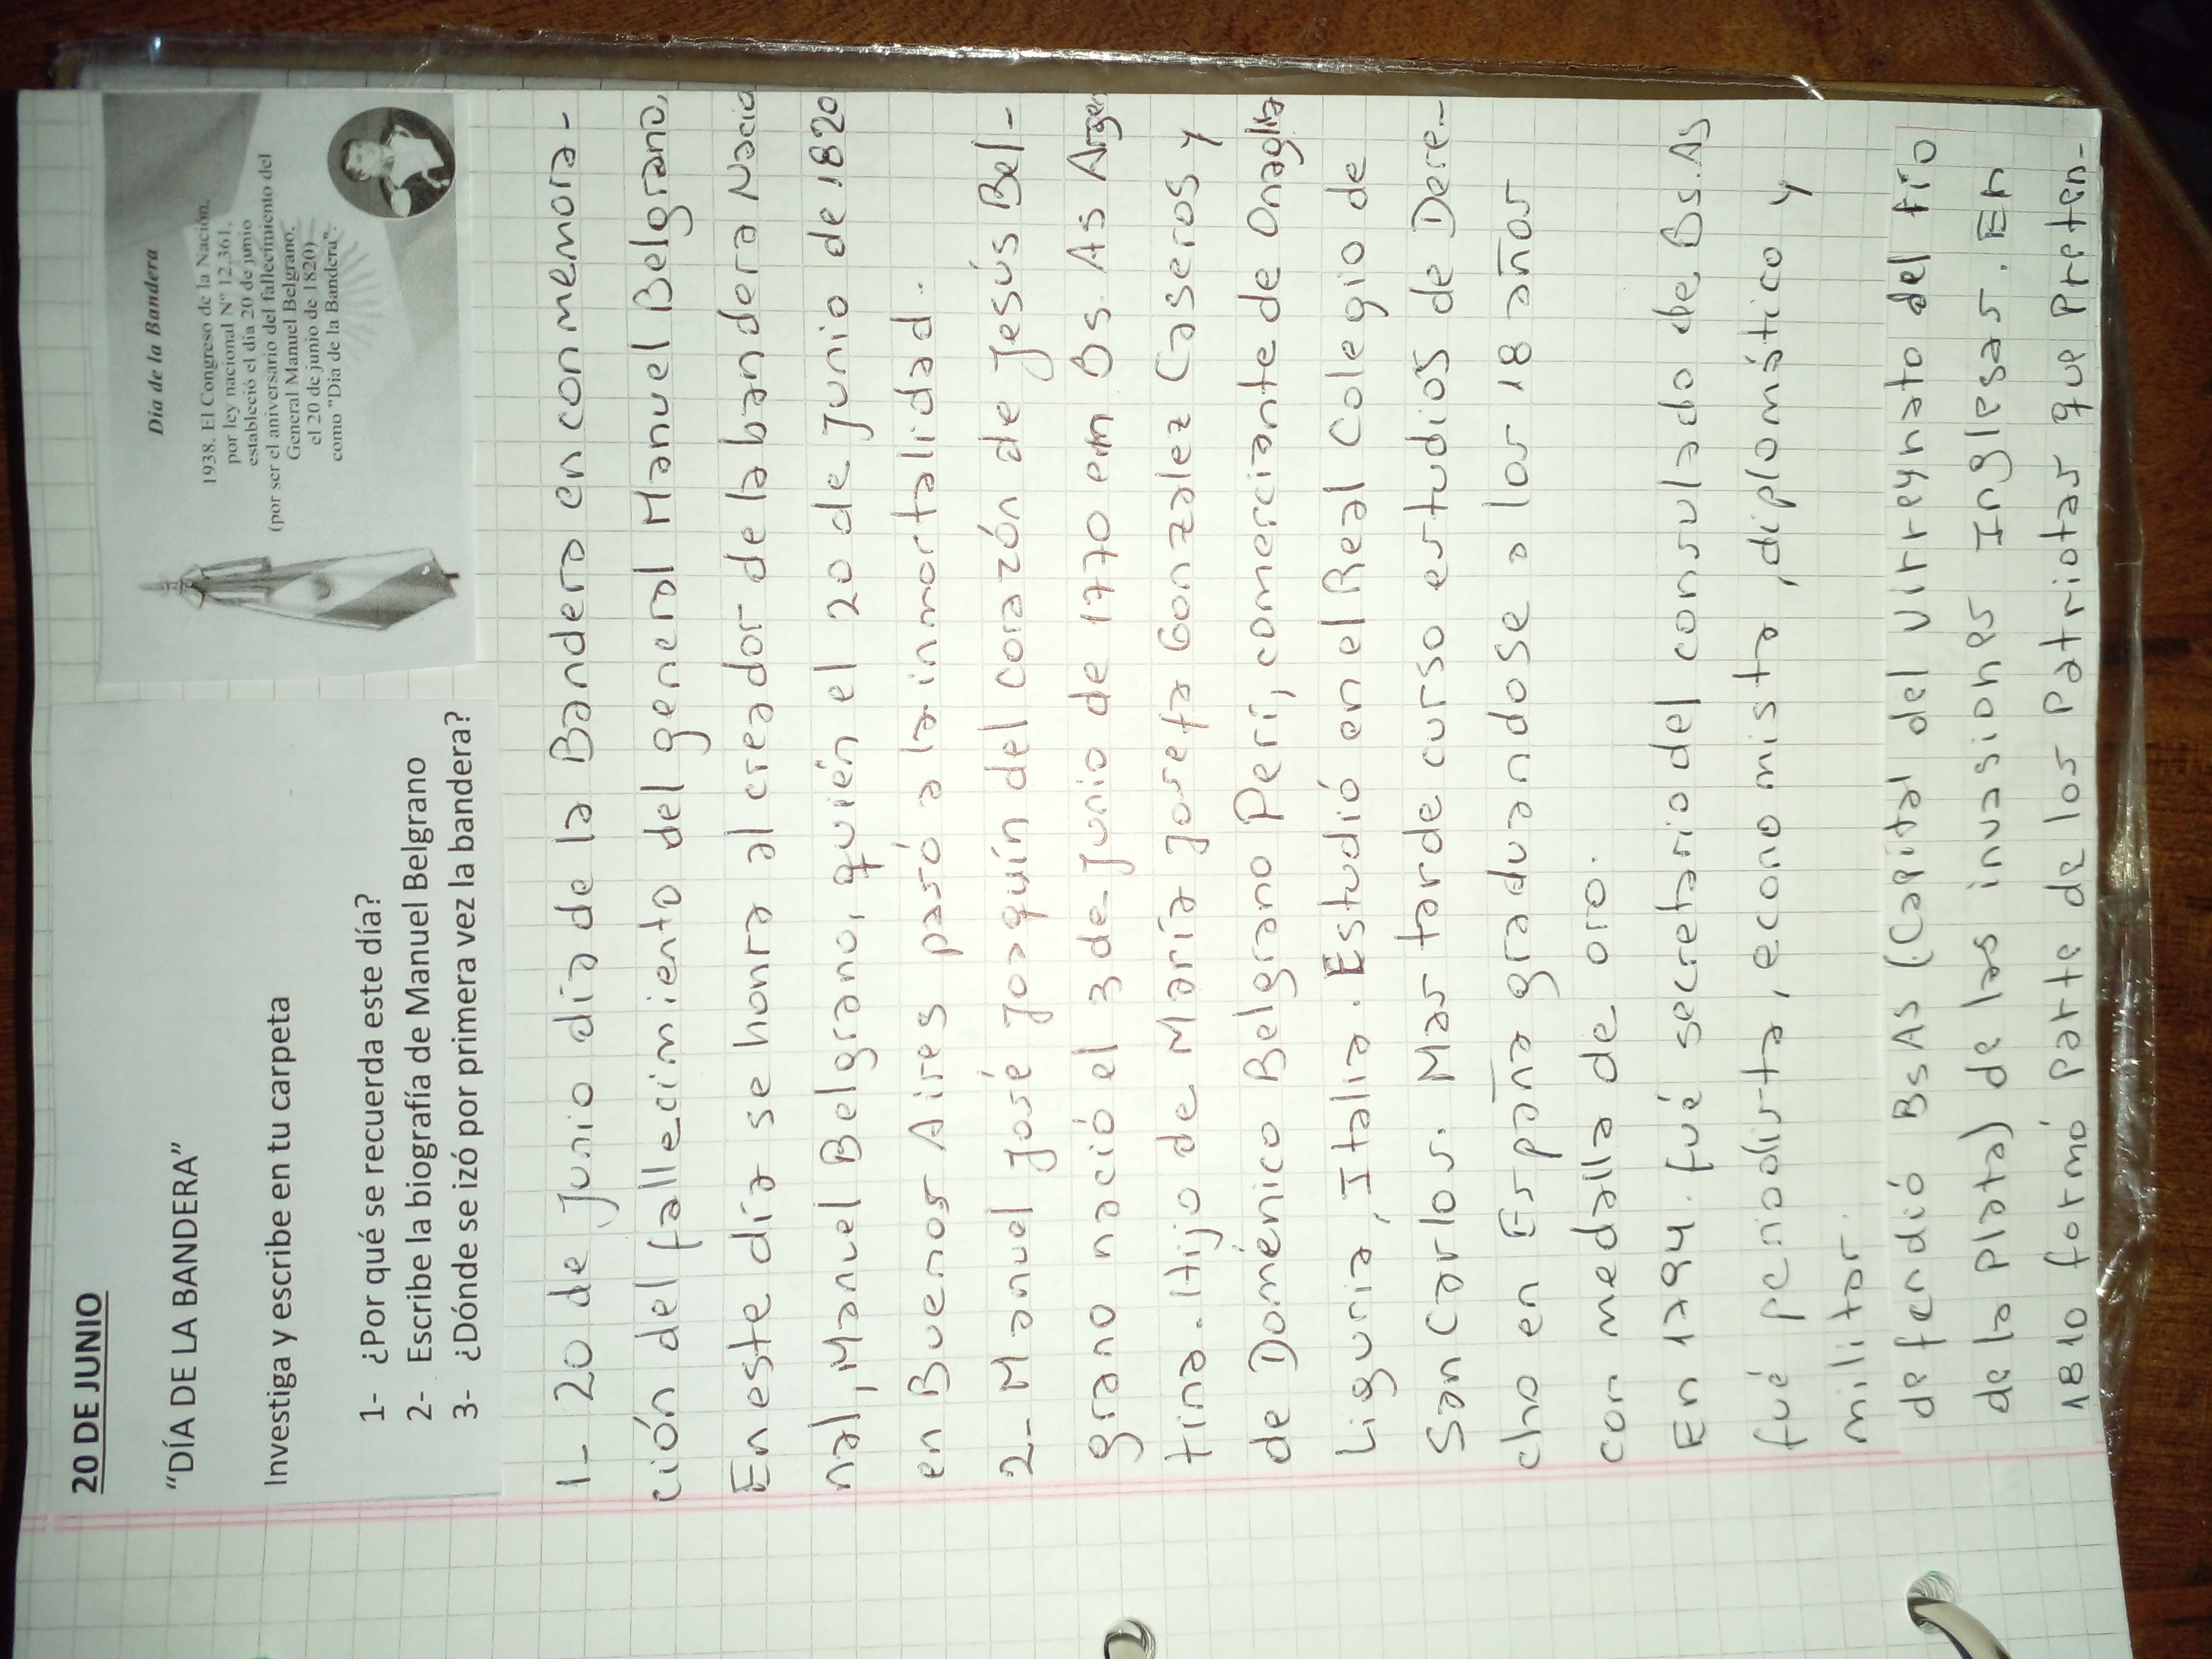 20 DE JUNIO
“DÍA DE LA BANDERA”
Investiga y escribe en tu carpeta
1- ¿Por qué se recuerda este día?
2- Escribe la biografía de Manuel Belgrano
3- ¿Dónde se izó por primera vez la bandera?
Día de la Bandera
1938. El Congreso de la Nación,
por ley nacional Nº 12.361,
estableció el día 20 de junio
(por ser el aniversario del fallecimiento del
General Manuel Belgrano,
el 20 de junio de 1820)
como "Día de la Bandera".
1- 20 de Junio día de la Bandera en conmemora-
ción del fallecimiento del general Manuel Belgrano,
En este día se honra al creador de la bandera Nacio
nal, Manuel Belgrano, quién el 20 de Junio de 1820
en Buenos Aires pasó a la inmortalidad..
2- Manuel José Joaquín del corazón de Jesús Bel-
grano nació el 3 de Junio de 1770 em Bs. As Argen
tina. Hijo de María Josefa Gonzalez Caseros y
de Doménico Belgrano Peri, comerciante de Onaglia
Liguria, Italia. Estudió en el Real Colegio de
San Carlos. Mas tarde curso estudios de Dere-
cho en España graduandose a los 18 años
con medalla de oro.
En 1794. fué secretario del consulado de Bs.As
fué periodista, economista, diplomático y
militar.
defendió BsAs (Capital del Virreynato del río
de la plata) de las invasiones Inglesas. En
1810 formó parte de los Patriotas que Preten-